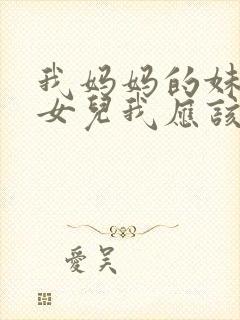 我妈妈的妹
女兒我應該
愛吴